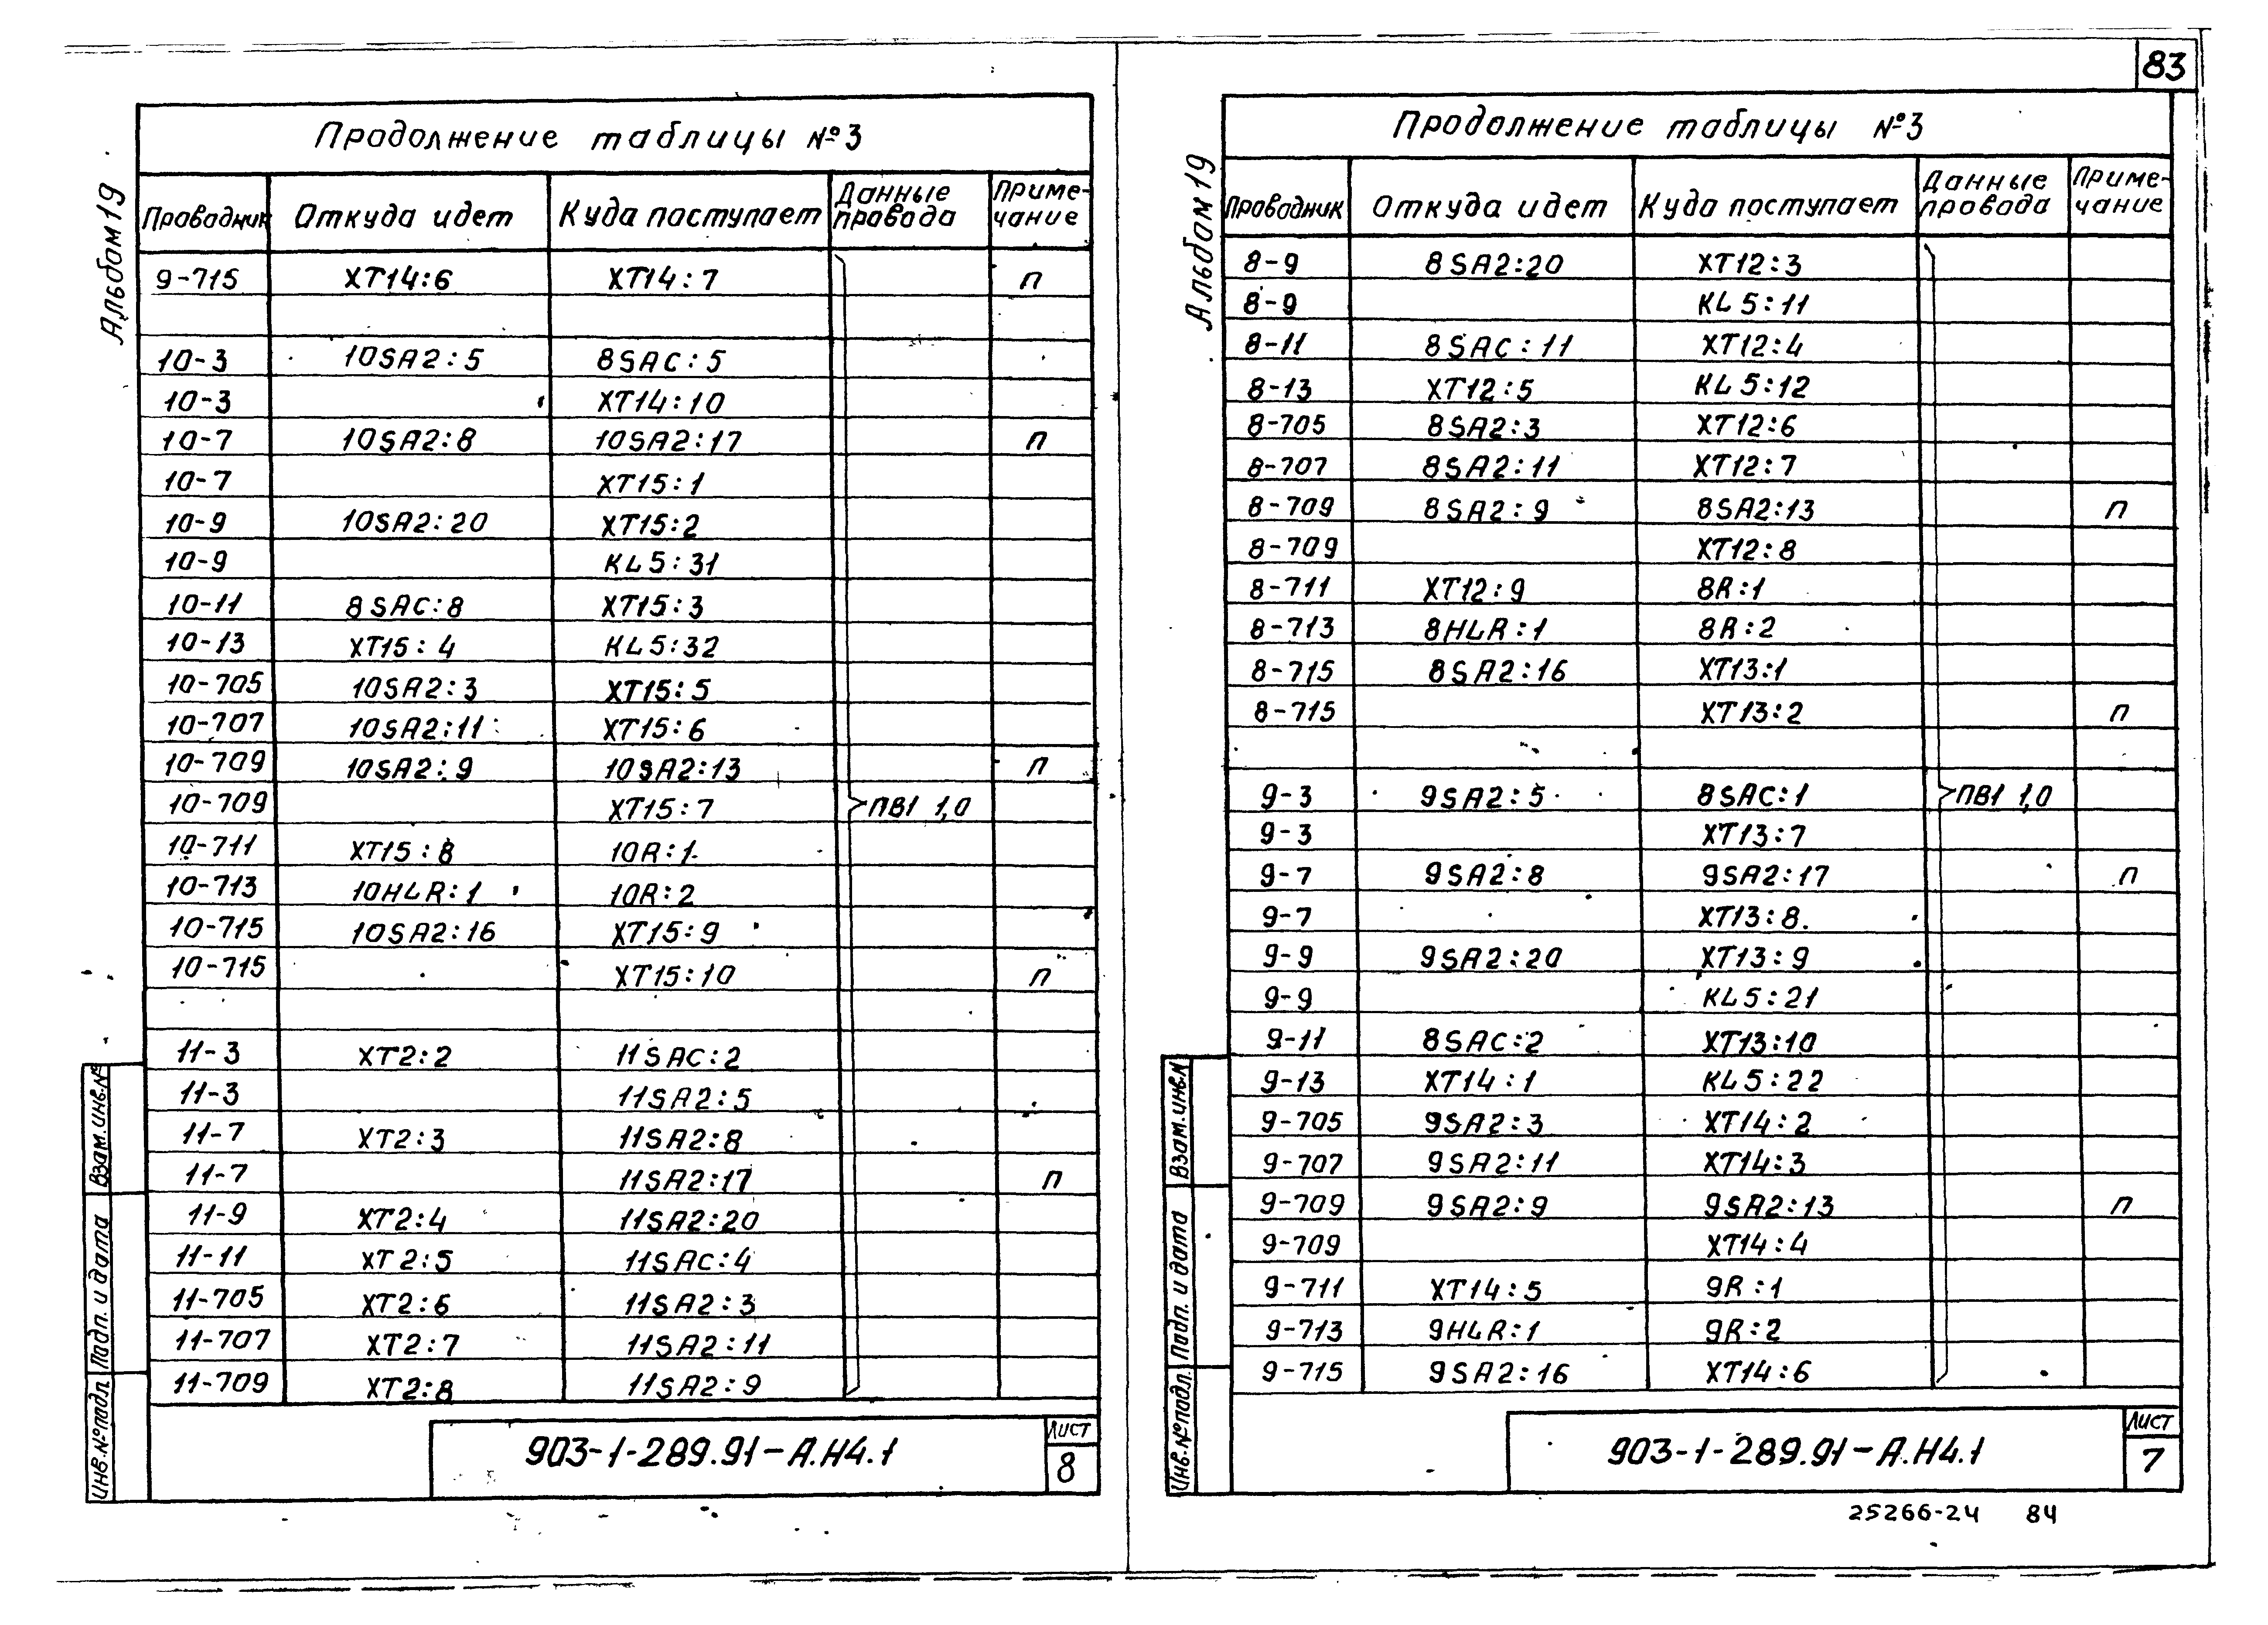 83
Альбом 19
Продолжение таблицы №3
Проводник Откуда идет Куда поступает Данные провода Приме-чание
9-715 XT14:6 XT14:7 п
10-3 10SA2:5 8SAC:5
10-3 XT14:10
10-7 10SA2:8 10SA2:17 п
10-7 XT15:1
10-9 10SA2:20 XT15:2
10-9 KL5:31
10-11 8SAC:8 XT15:3
10-13 XT15:4 KL5:32
10-705 10SA2:3 XT15:5
10-707 10SA2:11 XT15:6
10-709 10SA2:9 10SA2:13 п
10-709 XT15:7 ПВ1 1,0
10-711 XT15:8 10R:1
10-713 10HLR:1 10R:2
10-715 10SA2:16 XT15:9
10-715 XT15:10 п
11-3 XT2:2 11SAC:2
11-3 11SA2:5
11-7 XT2:3 11SA2:8
11-7 11SA2:17 п
11-9 XT2:4 11SA2:20
11-11 XT2:5 11SAC:4
11-705 XT2:6 11SA2:3
11-707 XT2:7 11SA2:11
11-709 XT2:8 11SA2:9
Взам.инв.№
Подп. и дата
Инв.№подл.
903-1-289.91-А.Н4.1
Лист
8
Альбом 19
Продолжение таблицы №3
Проводник Откуда идет Куда поступает Данные провода Приме-чание
8-9 8SA2:20 XT12:3
8-9 KL5:11
8-11 8SAC:11 XT12:4
8-13 XT12:5 KL5:12
8-705 8SA2:3 XT12:6
8-707 8SA2:11 XT12:7
8-709 8SA2:9 8SA2:13 п
8-709 XT12:8
8-711 XT12:9 8R:1
8-713 8HLR:1 8R:2
8-715 8SA2:16 XT13:1
8-715 XT13:2 п
9-3 9SA2:5 8SAC:1 ПВ1 1,0
9-3 XT13:7
9-7 9SA2:8 9SA2:17 п
9-7 XT13:8
9-9 9SA2:20 XT13:9
9-9 KL5:21
9-11 8SAC:2 XT13:10
9-13 XT14:1 KL5:22
9-705 9SA2:3 XT14:2
9-707 9SA2:11 XT14:3
9-709 9SA2:9 9SA2:13 п
9-709 XT14:4
9-711 XT14:5 9R:1
9-713 9HLR:1 9R:2
9-715 9SA2:16 XT14:6
Взам.инв.N
Подп. и дата
Инв.№подл.
903-1-289.91-А.Н4.1
Лист
7
25266-24 84